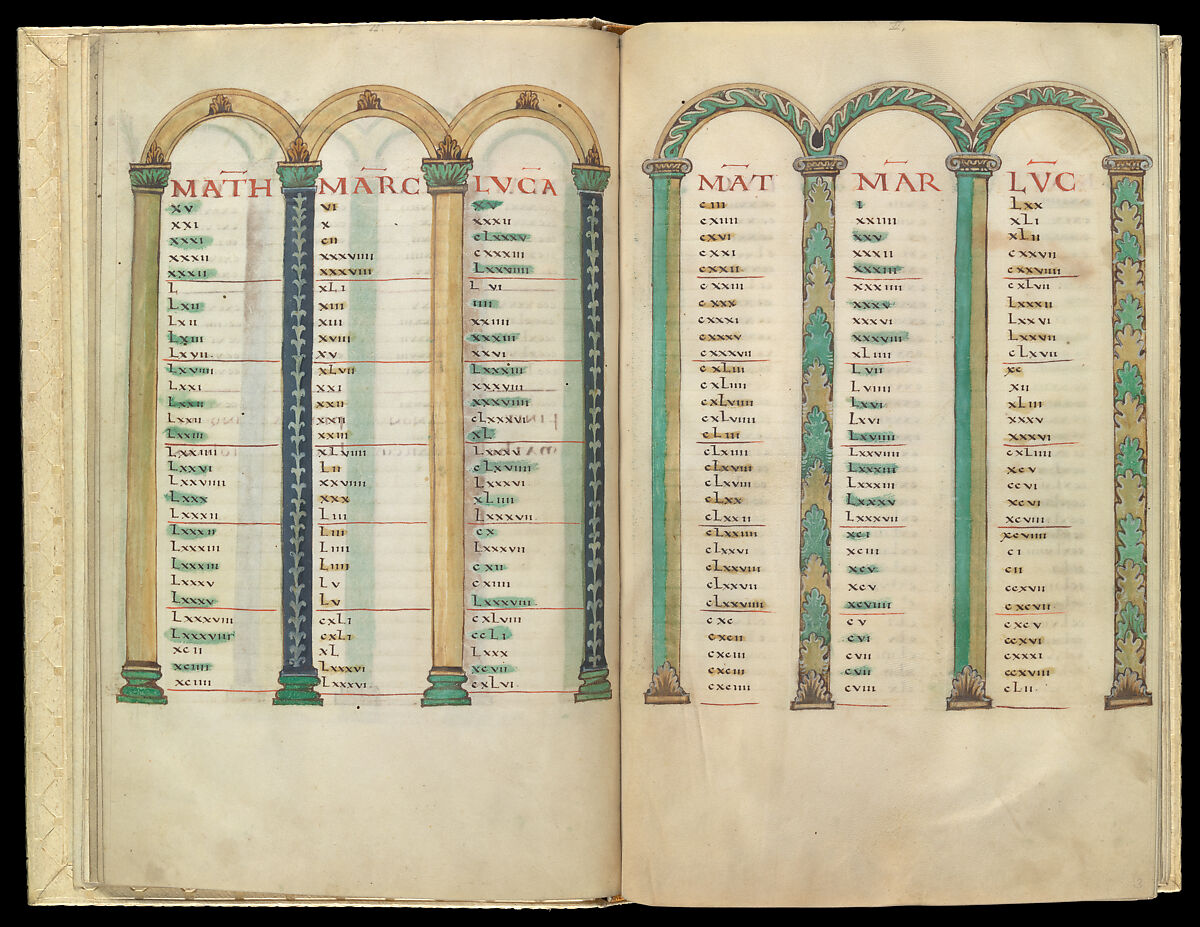 MATH MARC LVCA
xv vi xv
xxi x xxxii
xxxi cii cLxxxv
xxxii xxxviiii cxxxiii
xxxii xxxviiii Lxxviiii
L xLi Lvi
Lxii xiii iiii
Lxii xiii xxiiii
Lxiii xviii xxxiii
Lxvii xv xxvi
Lxviiii xLvii Lxxxiii
Lxxi xxi xxxviii
Lxxii xxii xxxviiii
Lxxii xxii cLxxxvi
Lxxiii xxiii xL
Lxxiiii xLviiii
Lxxvi Lii cLxviiii
Lxxviiii xxviiii Lxxxvi
Lxxx xxx xLiiii
Lxxxii Liii Lxxxvii
Lxxxii Liii cx
Lxxxiii Liiii Lxxxvii
Lxxxiii Liiii cxii
Lxxxv Lv cxiiii
Lxxxv Lv Lxxxviii
Lxxxviii cxLi cxLviii
Lxxxviiii cxLi ccLi
xcii xL Lxxx
xciiii Lxxxvi xcvii
xciiii Lxxxvi cxLvi
MAT MAR LVC
ciii i Lxx
cxiiii xxiiii xLi
cxvi xxv xLii
cxxi xxxii cxxvii
cxxii xxxiii cxxviiii
cxxiii xxxiiii cxLvii
cxxx xxxv Lxxxii
cxxxi xxxvi Lxxvi
cxxxv xxxviii Lxxvii
cxxxvii xLiiii cLxvii
cxLiii Lvii xc
cxLiiii Lviiii xii
cxLviiii Lxvi xLiii
cxLviiii Lxvi xxxv
cLiii Lxviiii xxxvi
cLxiiii Lxxviiii cxLiiii
cLxviii Lxxxiii xcv
cLxviii Lxxxiii ccvi
cLxx Lxxxv xcvi
cLxxii Lxxxvii xcviii
cLxxiiii xci xcviiii
cLxxvi xciii ci
cLxxviii xcv cii
cLxxvii xcv ccxvii
cLxxviiii xcviiii cxcvii
cxc cv cxcv
cxcii cvi ccxvi
cxciii cvii cxxxi
cxciii cvii ccxviii
cxciiii cviii cLii